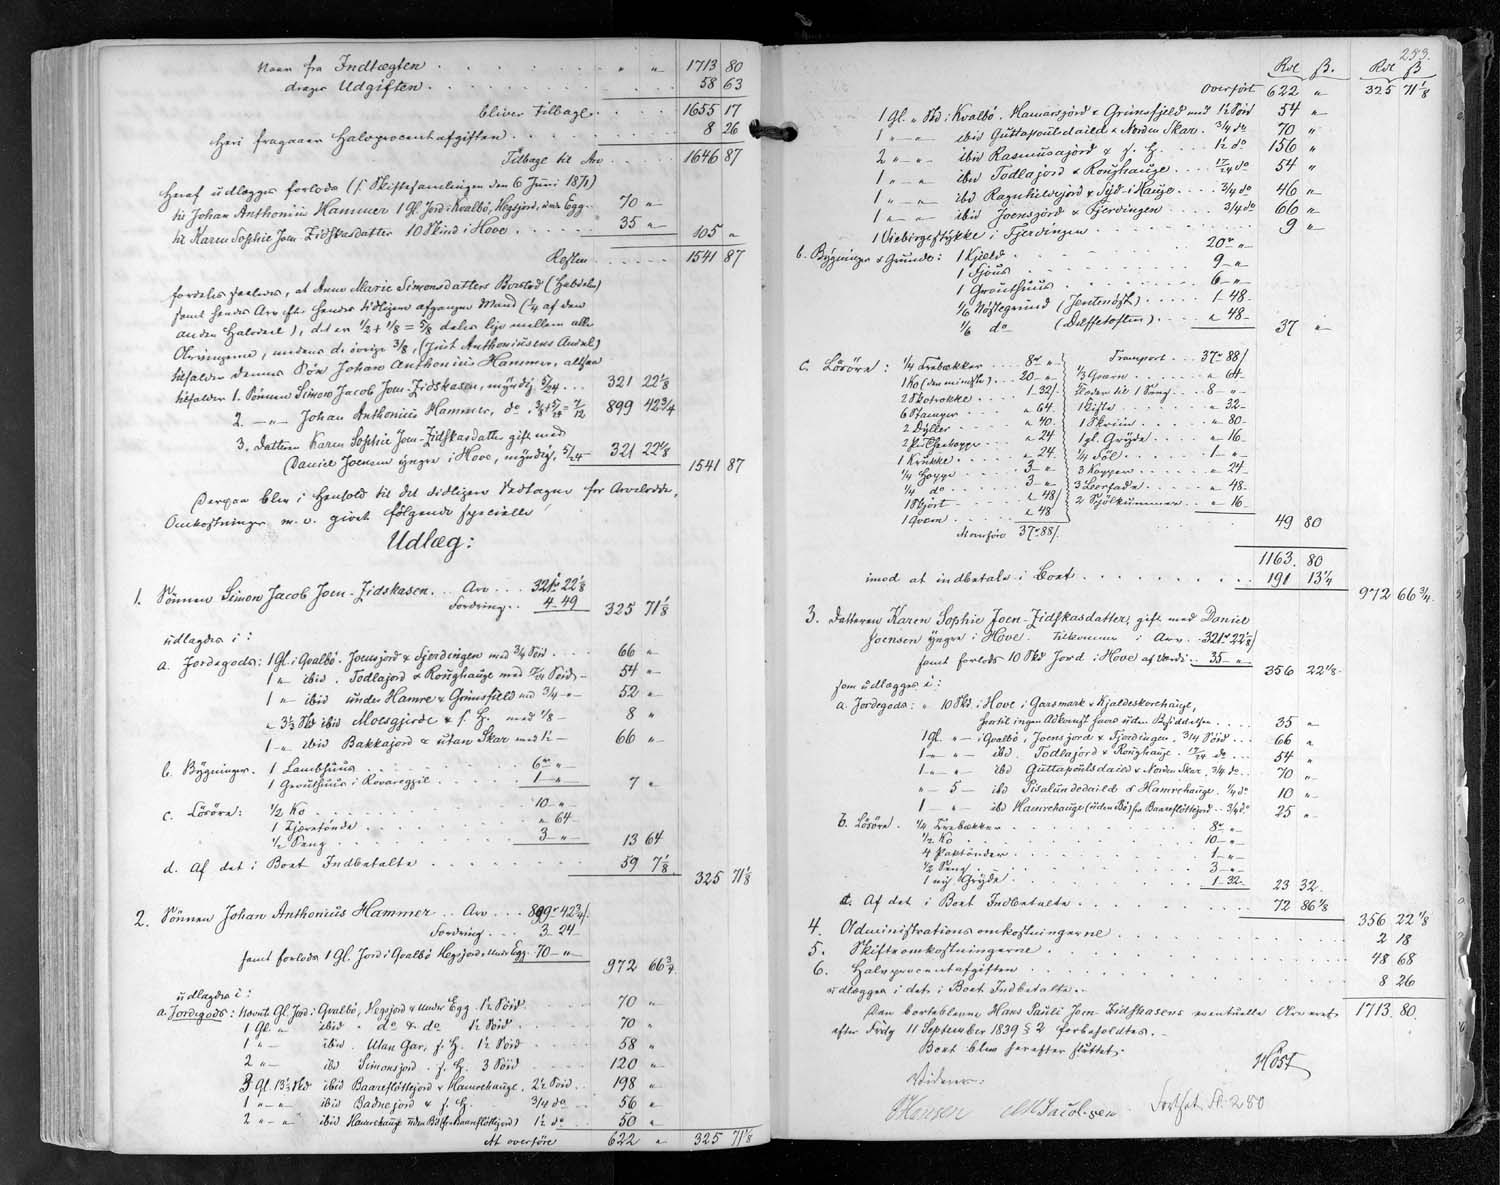 Naar fra Indtægten . . . . . . . . " " 1713 80
drages Udgiften . . . . . . . . 58 63
bliver tilbage . . . 1655 17
Heri fragaaer Halvprocentafgiften . . . . . 8 26
Tilbage til Arv . . . . 1646 87
Heraf udlægges forlods (f. Skiftesamlingen den 6 Juni 1871)
til Johan Anthonius Hammer 1 Gl. Jord i Kvalbö, Hegsjord, under Egg . . 70 "
til Karen Sophie Joen Zidskasdatter 10 Skind i Hove . . . . . 35 " 105 "
Resten . . . . . . 1541 87
fordeles saaledes, at Anne Marie Simonsdatters Boeslod (Halvdelen)
samt hendes Arv efter hendes tidligere afgangne Mand (1/4 af den
anden Halvdeel), det er 1/2 + 1/8 = 5/8 deles lige mellem alle
Arvingerne, medens de övrige 3/8, (Just Anthoniusens Andel)
tilfalder dennes Sön Johan Anthonius Hammer, altsaa
tilfalder 1. Sönnen Simon Jacob Joen-Zidskasen, myndig 5/24 . . . 321 22 1/8
2. —"— Johan Anthonius Hammer, do, 3/8 + 5/24 = 7/12 899 42 3/4
3. Datteren Karen Sophie Joen-Zidskasdatter gift med
Daniel Joensen yngre i Hove, myndig, 5/24 321 22 1/8 1541 87
Derpaa blev i Henhold til det tidligere Vedtagne for Arvelodde,
Omkostninger m. v. givet fölgende specielle
Udlæg:
1. Sönnen Simon Jacob Joen-Zidskasen . . . Arv . . . 321 22 1/8
Fordring . . 4-49 325 71 1/8
udlagdes i:
a. Jordegods: 1 Gl. i Qvalbö, Joensjord & Fjerdingen med 3/4 Söid . . . 66 "
1 " ibid. Todlajord & Ronghauge med 17/24 Söid . 54 "
1 " ibid under Hamre & Grunsfjeld med 3/4 —"— 52 "
" 3 1/3 Skd ibid Moesgjerde & f. H. med 1/8 — 8 "
1 —"— ibid Bakkajord & utan Skar med 1 1/2 — 66 "
b. Bygninger. 1 Lambhuus . . . . . . 6 "
1 Grouthuus i Kovaregzil . . . . . 1 — " — 7 "
c. Lösöre: 1/2 Ko . . . . . . 10 — "
1 Tjæretönde . . . . . " 64-
1/2 Seng . . . . . . 3 — " 13 64
d. Af det i Boet Indbetalte . . . . . . . 59 7 1/8
325 71 1/8
2. Sönnen Johan Anthonius Hammer . . Arv . . 899 42 3/4
Fordring . . . 3 24-
samt forlods 1 Gl. Jord i Qvalbö Hegsjord under Egg . 70 — " 972 66 3/4
udlagdes i:
a. Jordegods: 1 Gl. Jord i Qvalbö, Hegsjord & under Egg 1 1/2 Söid . . . 70 "
1 Gl. " ibid " do & do 1 1/2 Söid . . . . 70 "
1 " — ibid . Utan Gar, f. H. 1 1/2 Söid . . . . 58 "
2 " — ibid Simonsjord . f. H. 3 Söid . . . . 120 "
3 Gl. 13 1/3 Skd ibid Baareflöttejord & Hamrehauge, 2 1/2 Söid . . 198 "
1 " — " ibid Badnejord & f. H. . . . 3/4 do . . . 56 "
2 " — " ibid Hamrehauge (uden Bö fra Baareflöttejord) 1 1/2 do . . . 50 "
At overföre 622 " 325 71 1/8
253.
Rdl ß. Rdl ß
Overfört 622 " 325 71 1/8
1 Gl. " Skd i Kvalbö. Hamarsjord & Grunsfjeld med 1 1/2 Söid 54 "
1 " — " ibid Guttapoulsdaild & Norden Skar . 3/4 do 70 "
2 " — " ibid Rasmusajord & f. H. . . . 1 1/2 do 156 "
1 " — " ibid Todlajord & Ronghauge . . . 17/24 do 54 "
1 " — " ibid Ragnhildsjord & Syd i Hauge . . . 3/4 do 46 "
1 — " — ibid Joensjord & Fjerdingen . . . . 3/4 do 66 "
1 Viebirgestykke i Fjerdingen . . . . . . . . 9 "
b. Bygninger & Grunde: 1 Kjeld . . . . . . . . 20 "
1 Fjöus . . . . . . . . 9 — "
1 Grouthuus . . . . . . . 6 — "
1/6 Nöstegrund (Jentenöst) . . . . 1-48-
1/6 do (Dulfetoften) . . . . " 48- 37 "
c. Lösöre: 1/4 Trebækker . . . . 8 " — Transport . . . 37 88/
1 Ko (den mindste) . . . 20 — " 1/3 Qværn . . . . " 64-
2 Skotrokke . . . . 1 32/ Foder til 1 Seng . . . 8 — "
6 Stamper . . . . " 64. 1 Kiste . . . . . " 32-
2 Dyller . . . . . " 40. 1 Skriin . . . . . " 80-
" 24 1 gl. Gryde . . . . " 16-
1 Krukke . . . . . " 24. 1/4 Söl . . . . . 1 — "
1/4 Hoppe . . . . . 3 — " 3 Kopper . . . . " 24-
1/4 do . . . . . 3 — " 3 Leerfade . . . . " 48-
1 Skjört . . . . . " 48/ " 16-
1 Qværn . . . . . " 48 49 80
37 88/
1163. 80
imod at indbetale i Boet . . . . . . . . . 191 13 1/4
972 66 3/4.
3. Datteren Karen Sophie Joen-Zidskasdatter, gift med Daniel
Joensen yngre i Hove. Tilkommer i Arv . . 321 22 1/8/
samt forlods 10 Skd Jord i Hove af Værdi . . 35 — " 356 22 1/8-
som udlagges i:
a. Jordegods: " 10 Skd. i Hove i Garsmark & Kjaldeskorehauge,
hvortil ingen Adkomst haves uden Besiddelsen . . . . 35 "
1 Gl. " — i Qvalbö, Joensjord & Fjerdingen . 3/4 Söid . . . 66 "
1 — " — " ibid . Todlajord & Ronghauge . 17/24 do . . . 54 "
1 — " — " ibid Guttapoulsdaild & Norden Skar . 3/4 do . . . 70 "
" — 5 — ibid Sisalundedaild & Hamrehauge . 1/4 do 10 "
1 — " — ibid Hamrehauge (uden Bö) fra Baareflöttejord . . 3/4 do 25 "
b. Lösöre. 1/4 Trebækker . . . . . . . . 8 " —
1/2 Ko . . . . . . . . 10 — "
4 Saktönder . . . . . . . . 1 — "
1/2 Seng . . . . . . . . 3 — "
1 ny Gryde . . . . . . . . 1-32- 23 32.
c. Af det i Boet Indbetalte . . . . . . . . 72 86 1/8
356 22 1/8
4. Administrationsomkostningerne . . . . . . . . 2 18
5. Skifteomkostningerne . . . . . . . . 48 68
6. Halvprocentafgiften . . . . . . . . 8 26
udlægges i det i Boet Indbetalte . .
1713. 80.
Den borteblevne Hans Pauli Joen-Zidskasens eventuelle Arveret
efter Frdg 11 September 1839 § 2 forbeholdtes. —
Boet blev herefter sluttet.
Höst
Vidner:
JHansen MJacobsen. Fortsat S. 280